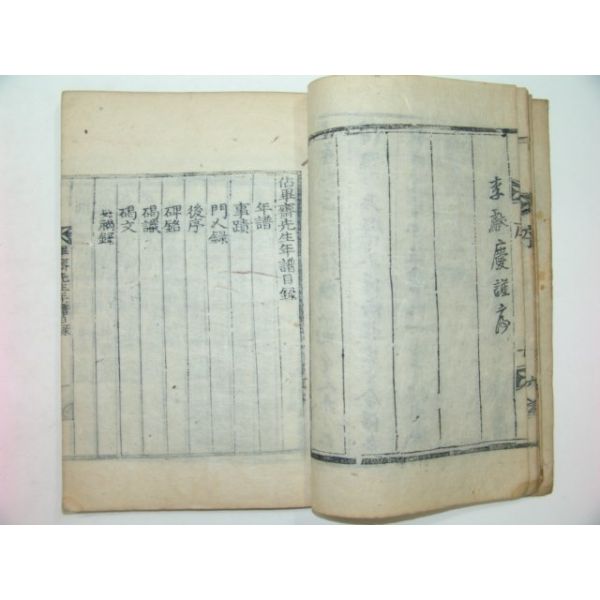 李𤨒慶謹序
佔畢齋先生年譜目録
年譜
事蹟
門人録
後序
碑銘
碣識
碣文